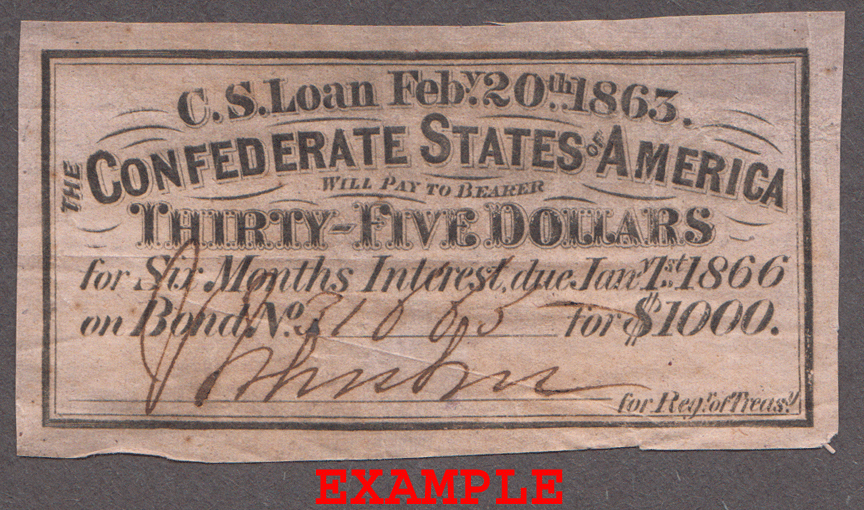 C.S. Loan Feby. 20th. 1863.
THE CONFEDERATE STATES OF AMERICA
WILL PAY TO BEARER
THIRTY-FIVE DOLLARS
for Six Months Interest, due Jany. 1st. 1866
on Bond No. 31885 for $1000.
for Regr. of Treasy.
EXAMPLE